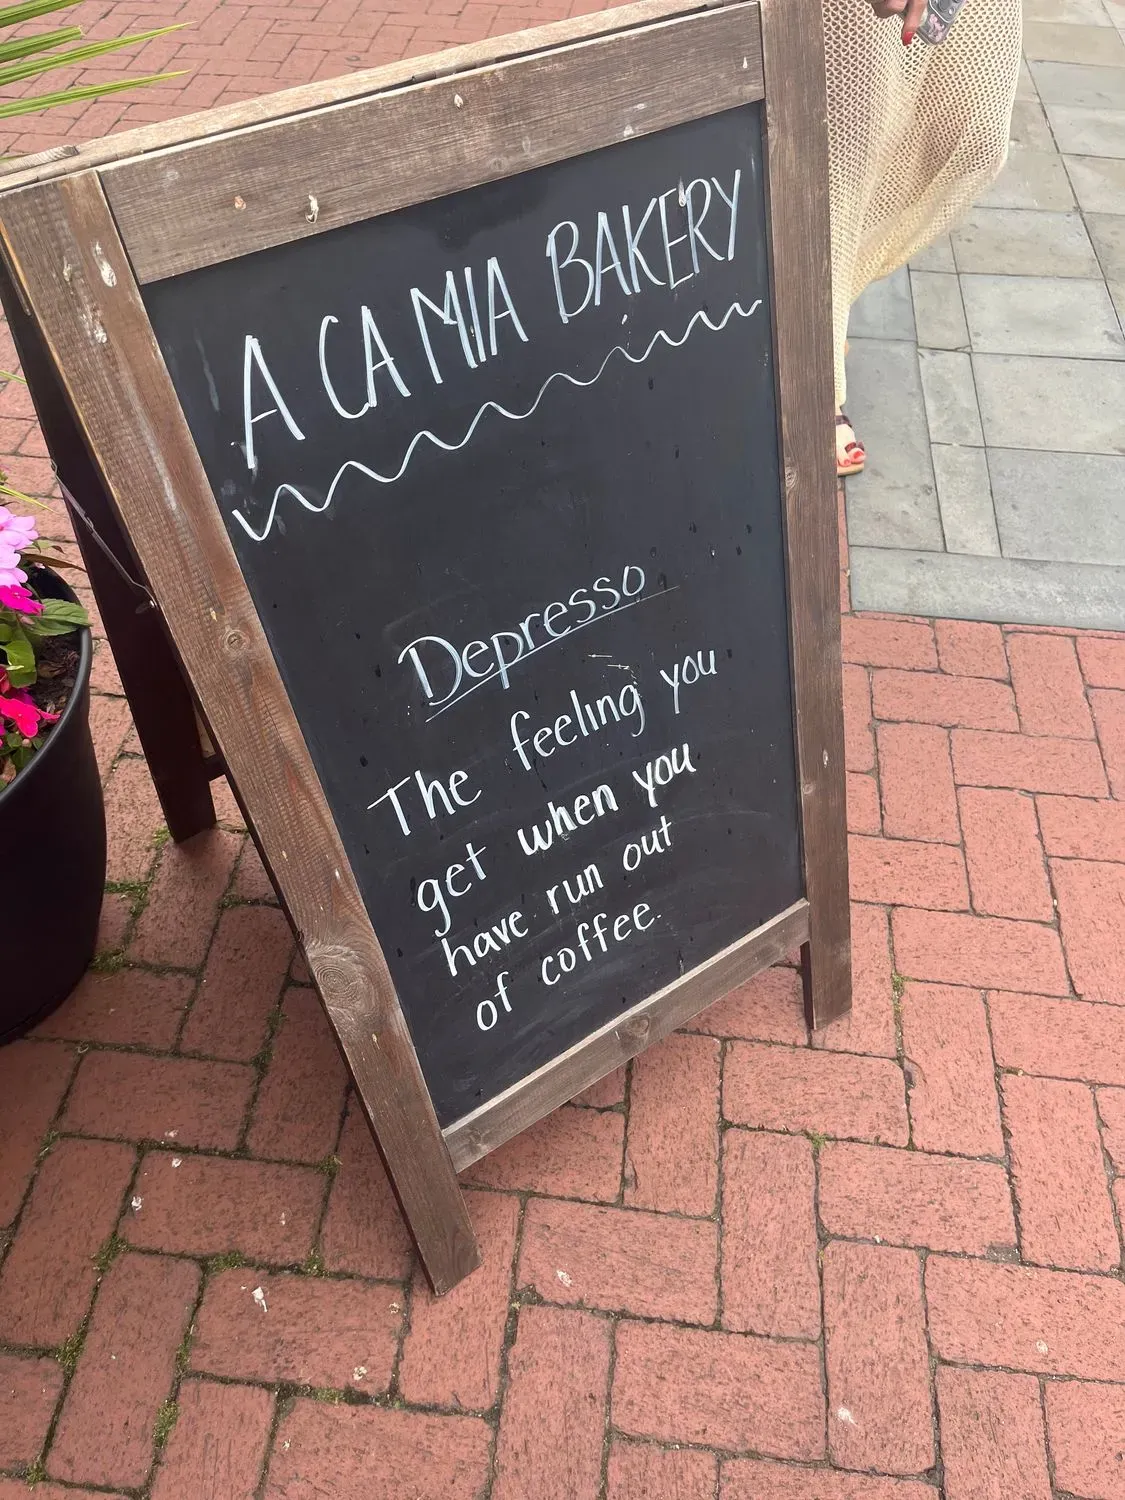 A CA MIA BAKERY
Depresso
The feeling you
get when you
have run out
of coffee.